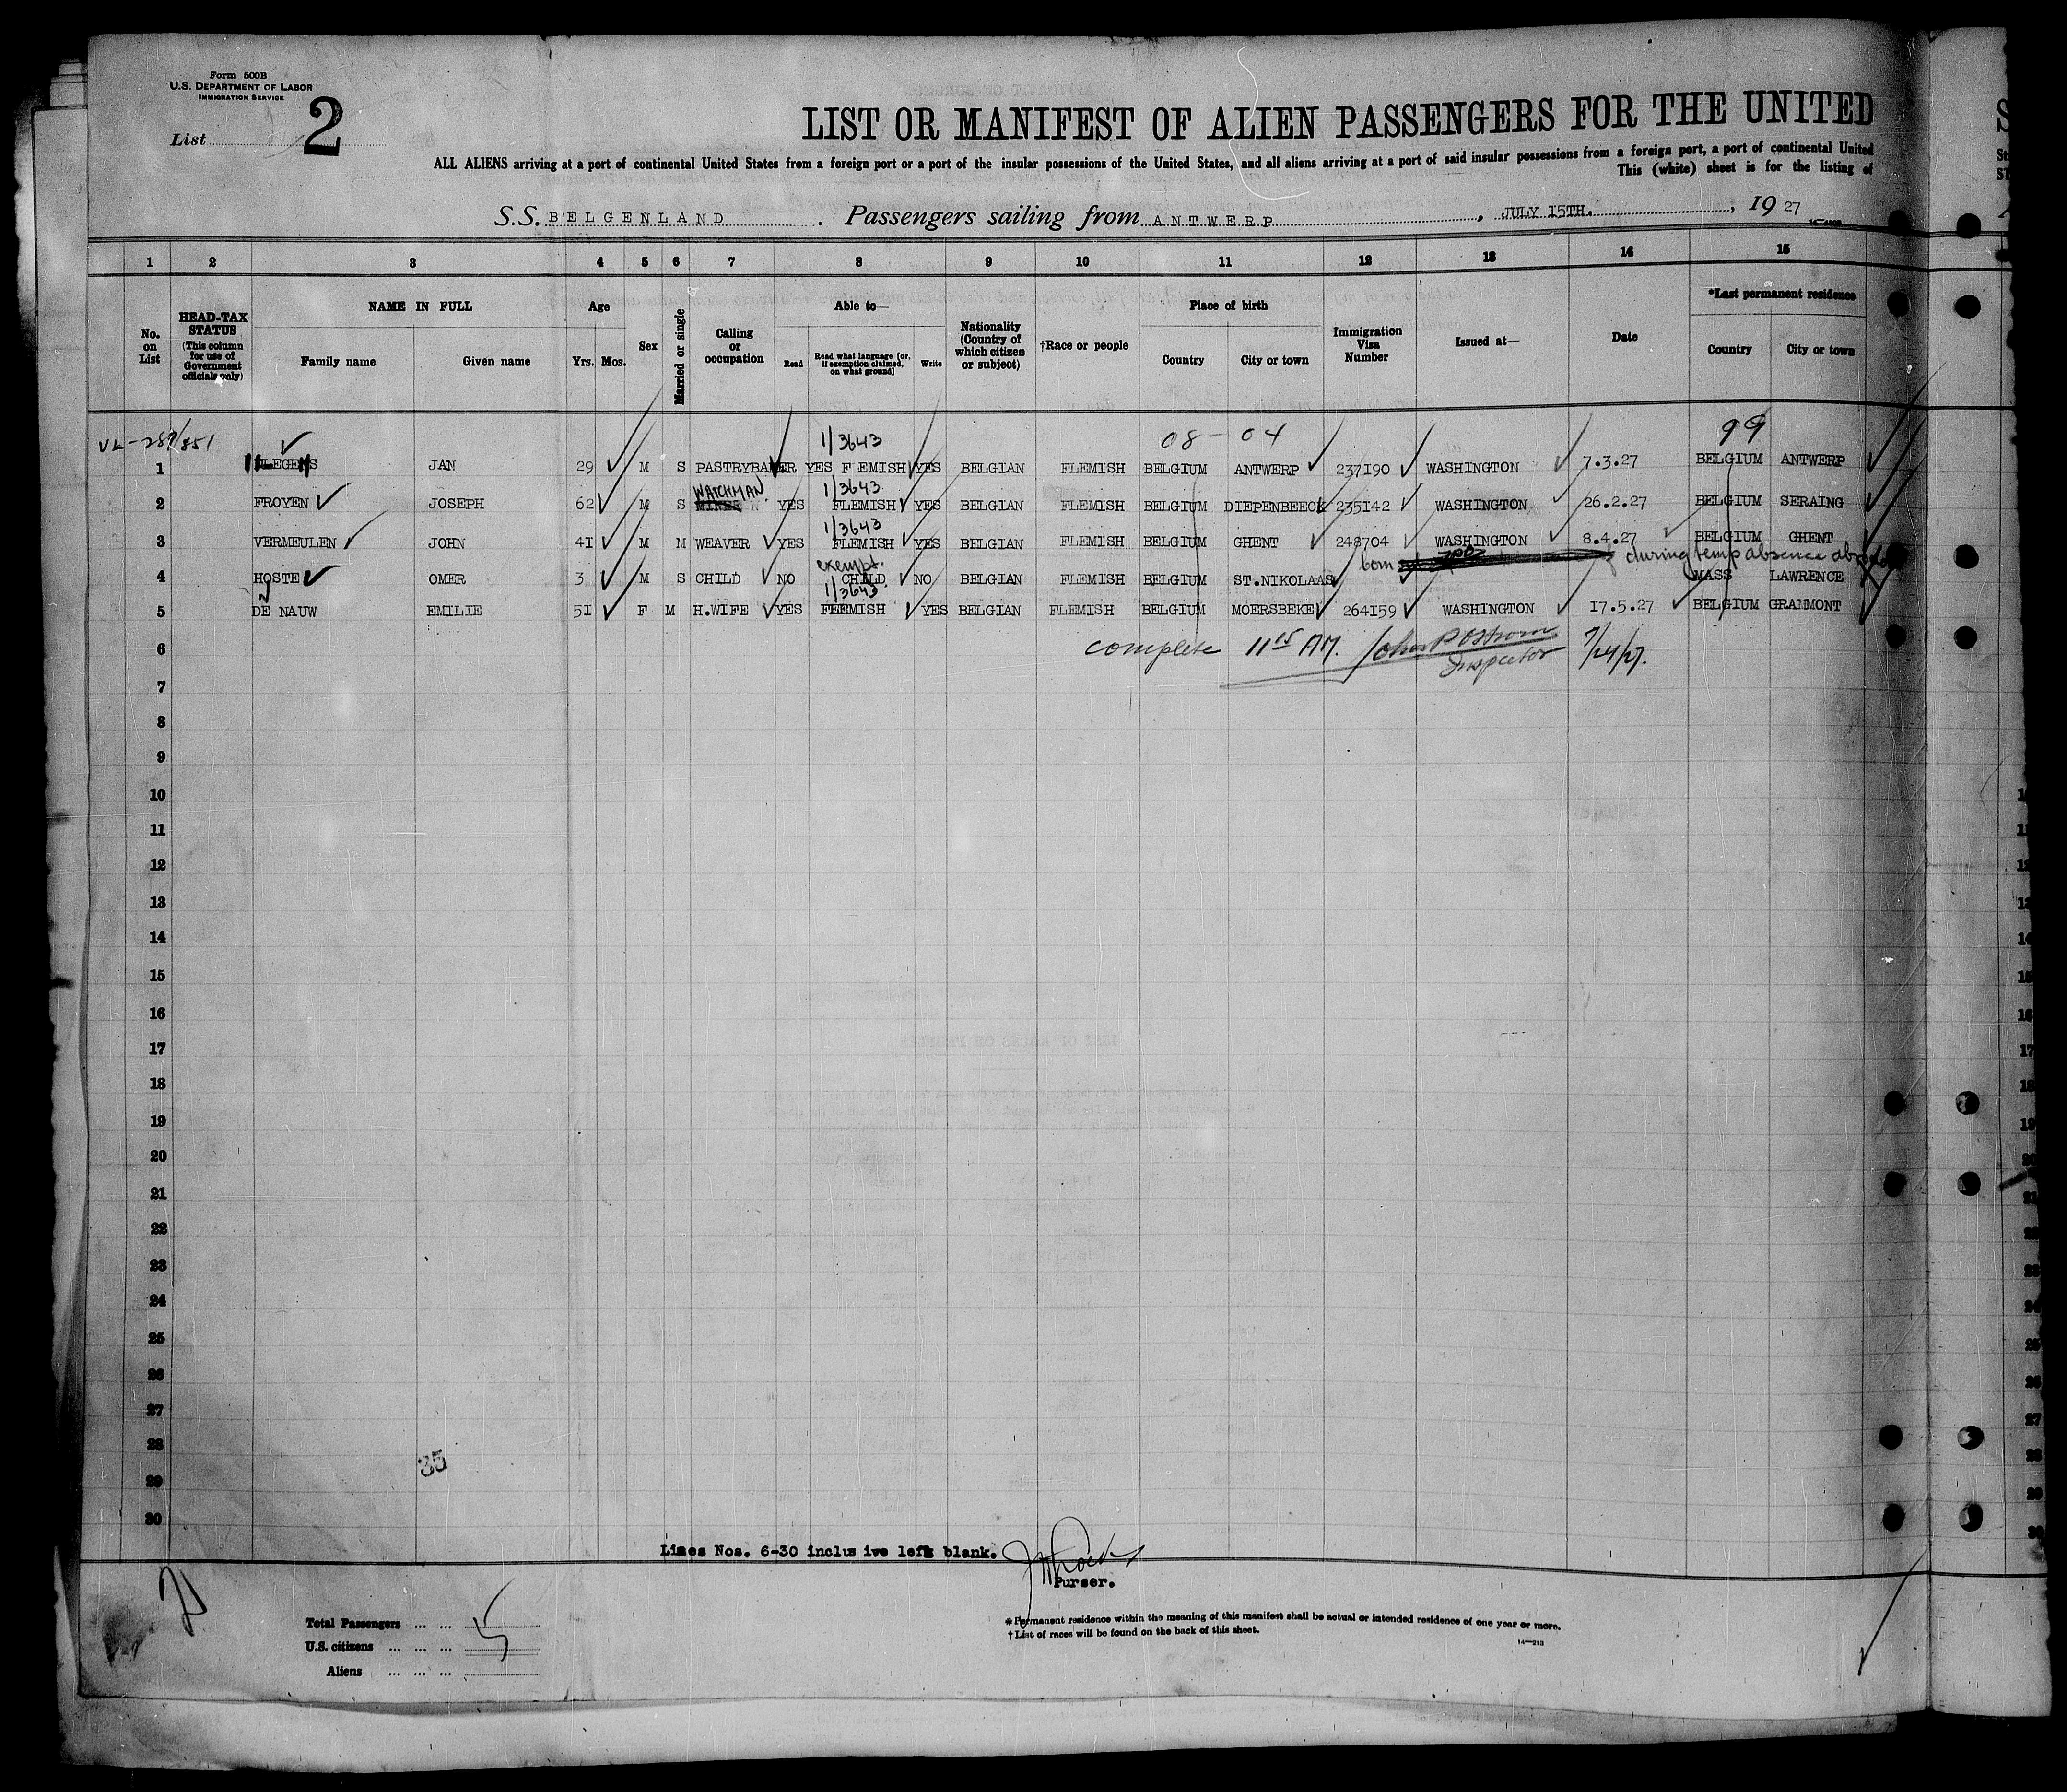 Form 500B
U.S. DEPARTMENT OF LABOR
IMMIGRATION SERVICE
List 2
LIST OR MANIFEST OF ALIEN PASSENGERS FOR THE UNITED
ALL ALIENS arriving at a port of continental United States from a foreign port or a port of the insular possessions of the United States, and all aliens arriving at a port of said insular possessions from a foreign port, a port of continental United
This (white) sheet is for the listing of
S.S. BELGENLAND . Passengers sailing from ANTWERP , JULY 15TH. , 19 27
1 2 3 4 5 6 7 8 9 10 11 12 13 14 15
No. on List
HEAD-TAX STATUS (This column for use of Government officials only)
NAME IN FULL
Family name
Given name
Age
Yrs. Mos.
Sex
Married or single
Calling or occupation
Able to—
Read
Read what language [or, if exemption claimed, on what ground]
Write
Nationality (Country of which citizen or subject)
†Race or people
Place of birth
Country
City or town
Immigration Visa Number
Issued at—
Date
*Last permanent residence
Country
City or town
1/3643 08 - 04 99
1 JAN 29 M S PASTRYBAKER YES FLEMISH YES BELGIAN FLEMISH BELGIUM ANTWERP 237190 WASHINGTON 7.3.27 BELGIUM ANTWERP
WATCHMAN 1/3643
2 FROYEN JOSEPH 62 M S YES FLEMISH YES BELGIAN FLEMISH BELGIUM DIEPENBEECK 235142 WASHINGTON 26.2.27 BELGIUM SERAING
1/3643
3 VERMEULEN JOHN 41 M M WEAVER YES FLEMISH YES BELGIAN FLEMISH BELGIUM GHENT 248704 WASHINGTON 8.4.27 BELGIUM GHENT
exempt. born during temp absence abroad
4 HOSTE OMER 3 M S CHILD NO CHILD NO BELGIAN FLEMISH BELGIUM ST.NIKOLAAS MASS LAWRENCE
1/3643
5 DE NAUW EMILIE 51 F M H.WIFE YES FLEMISH YES BELGIAN FLEMISH BELGIUM MOERSBEKE 264159 WASHINGTON 17.5.27 BELGIUM GRAMMONT
6 complete 11 15 AM. John P Ostrom 7/24/27.
Inspector
7
8
9
10
11
12
13
14
15
16
17
18
19
20
21
22
23
24
25
26
27
28
35
29
30
Lines Nos. 6-30 inclus ive left blank.
Purser.
Total Passengers ... ... 5
U.S. citizens ... ... ...
Aliens ... ... ...
*Permanent residence within the meaning of this manifest shall be actual or intended residence of one year or more.
†List of races will be found on the back of this sheet.
14—213